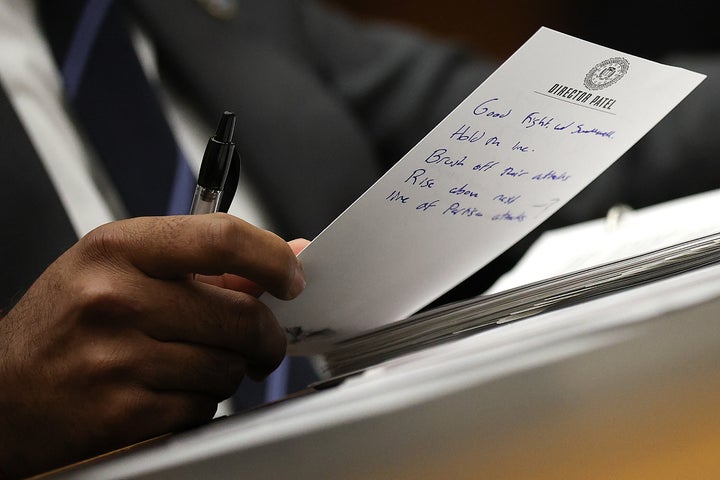 DIRECTOR PATEL
Good fight w/ Swalwell.
Hold the line.
Brush off their attacks
Rise above next
line of Partisan attacks